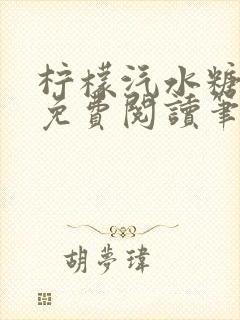 柠檬汽水糖
免費閱讀筆
胡夢瑋